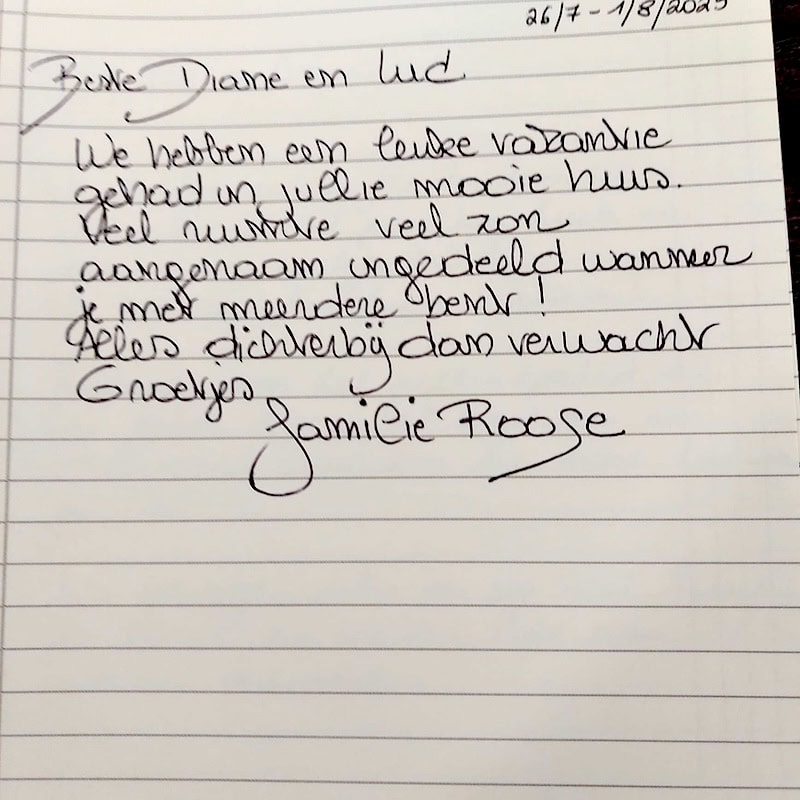 26/7 - 1/8/2025
Beste Diane en Luc
We hebben een leuke vakantie
gehad in jullie mooie huis.
Veel ruimte veel zon
aangenaam ingedeeld wanneer
je met meerdere bent !
Alles dichterbij dan verwacht
Groetjes
familie Roose